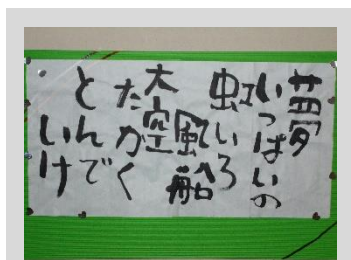 夢
いっぱいの
虹いろ
風船
大空
たかく
とんで
いけ